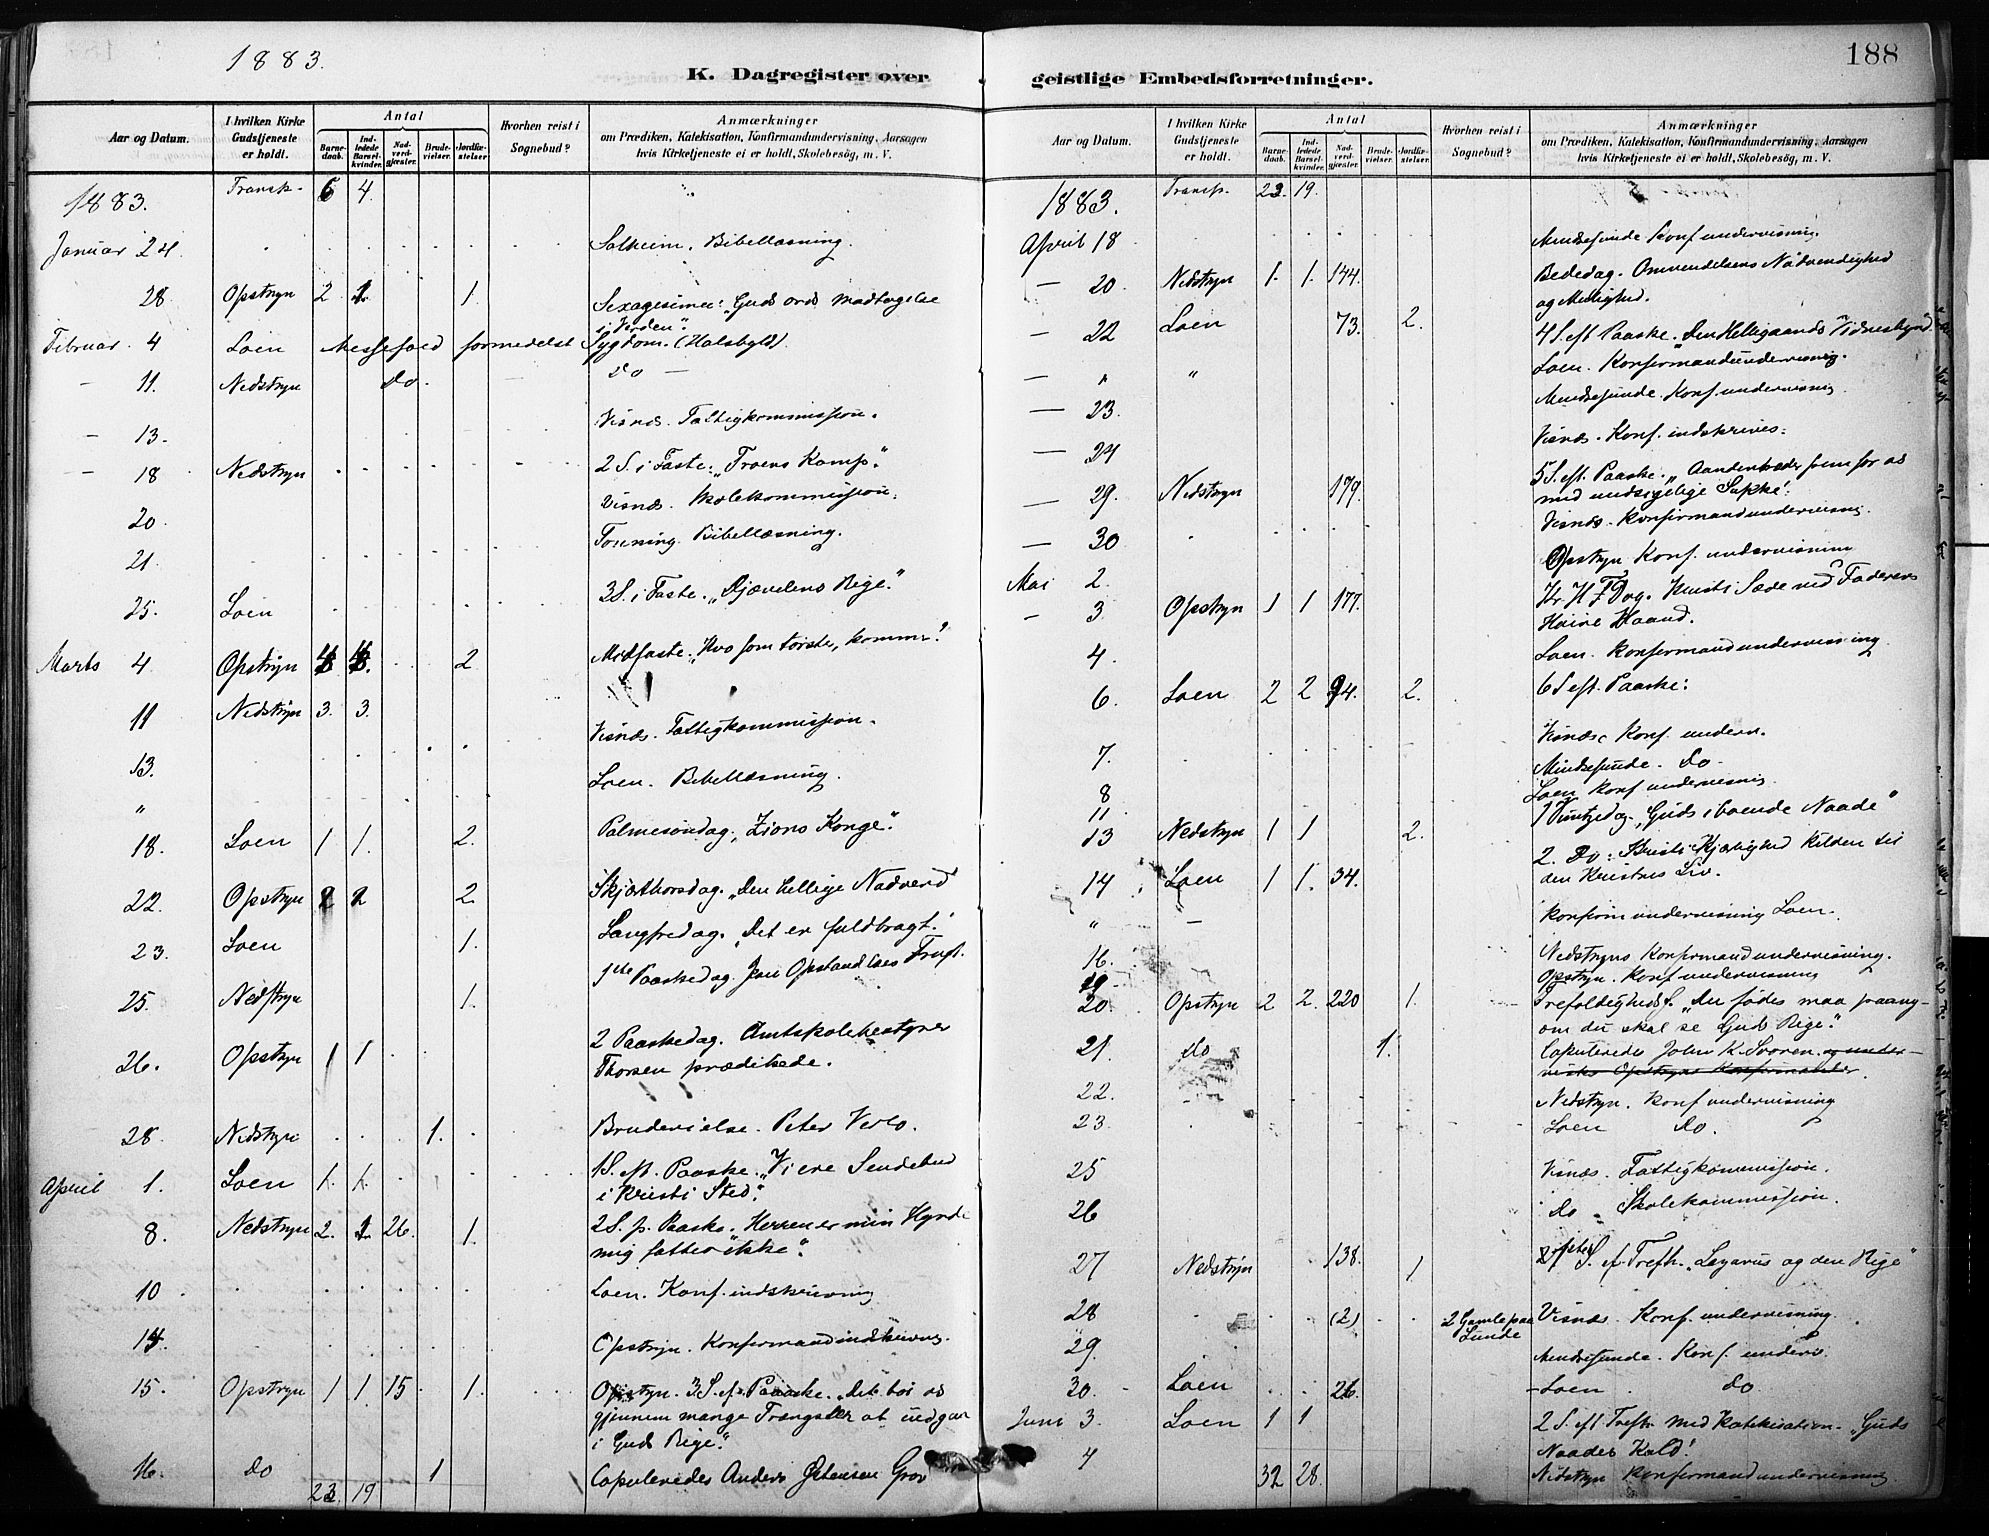 1883.
K. Dagregister over
Aar og Datum.
I hvilken Kirke Gudstjeneste er holdt.
Antal
Barne-daab.
Ind-ledede Barsel-kvinder.
Nad-verd-gjæster.
Brude-vielser.
Jordfæ-stelser.
Hvorhen reist i Sognebud?
Anmærkninger
om Prædiken, Katekisation, Konfirmandundervisning, Aarsagen
hvis Kirketjeneste ei er holdt, Skolebesög, m. V.
1883. Transp. 6 4.
Januar 24. Solheim. Bibellæsning.
28 Opstryn 2 1. 1. Sexagesima: "Guds ords Modtagelse
i Verden".
Februar 4 Loen Messefald formedelst Sygdom. (Halsbyld)
- 11. Nedstryn Do. Do -
- 13. Visnæs. Fattigkommission.
- 18 Nedstryn 2 S. i Faste: "Troens Kamp."
20. Visnæs. Skolekommission.
21. Tonning. Bibellæsning.
25. Loen 3 S. i Faste. "Djævelens Rige."
Marts 4 Opstryn 4 4. 2. Midfaste. "Hvo som törster, komme"
11 Nedstryn 3. 3.
13. Visnæs. Fattigkommission.
" Loen. Bibellæsning.
18. Loen 1 1. 2. Palmesöndag. "Zions Konge".
22. Opstryn 2 2 2. Skjærthorsdag. "Den hellige Nadverd
23. Loen 1. Langfredag. "Det er fuldbragt."
25. Nedstryn 1. 1ste Paaskedag. Jesu Opstandelses Frugt.
26. Opstryn 1 1 2 Paaskedag. Amtskolebestyrer
Thorsen prædikede.
28 Nedstryn 1. Brudevielse. Peter
April 1. Loen 1. 1. 1 S. eft. Paaske. "Vi ere Sendebud
i Kristi Sted".
8. Nedstryn 2. 1 26. 1. 2 S. p. Paaske. "Herren er min Hyrde
mig fattes ikke".
10 Loen. Konf. indskrivning
14. Opstryn. Konfirmandindskrivng.
15. Opstryn 1 1. 15 1. Opstryn. 3 S. ef. Paaske. "Det bör os
gjennem mange Trængsler at indgaa
i Guds Rige".
16. Do 1 Copuleredes Anders Østensen Grov
23. 19
188
geistlige Embedsforretninger.
Aar og Datum.
I hvilken Kirke Gudstjeneste er holdt.
Antal
Barne-daab.
Ind-ledede Barsel-kvinder.
Nad-verd-gjæster.
Brude-vielser.
Jordfæ-stelser.
Hvorhen reist i Sognebud?
Anmærkninger
om Prædiken, Katekisation, Konfirmandundervisning, Aarsagen
hvis Kirketjeneste ei er holdt, Skolebesög, m. V.
1883. Transp. 23 19.
April 18 Mindresunde Konfundervisning
- 20. Nedstryn 1. 1. 144. Bededag. Omvendelsens Nödvendighed
og Mulighed.
- 22 Loen 73. 2. 4 S. eft Paaske. "Den Helligaands Vidnesbyrd"
- " " Loen. Konfirmandundervisnig.
- 23. Mindresunde. Konfundervisning
- 24 Visnæs. Konf. indskrives.
- 29. Nedstryn 179. 5 S. eft. Paaske. "Aanden træder frem for os
med uudsigelige Sukke".
- 30 Visnæs. Konfirmandundervisng.
Mai 2. Opstryn Konf. undervisning
- 3 Opstryn 1 1 177. Kr. H. F. Dag. Kristi Sæde ved Faderens
Höire Haand.
4. Loen. Konfirmandundervisning
6. Loen 2 2 94. 2. 6 S eft. Paaske:
7. Visnæs Konf. underv.
8 Mindresunde. Do.
11. Loen Konf undervisnig
13 Nedstryn 1 1 2. 1 Pintsedag. "Guds iboende Naade"
14 Loen 1 1. 34. 2. Do: Kristi Kjærlighed Kilden til
den Kristnes Liv.
" - Konfirm undervisning Loen.
16. Nedstryns Konfirmandundervisning.
19 Opstryn. Konfundervisning
20. Opstryn 2 2. 220 1. Trefoldigheds S. "Der födes maa paany
om du skal se Guds Rige".
21. Do 1. Copuleredes John K. Svoren. og under-
vistes Opstryns Konfirmander.
22. Nedstryn. Konfundervisning
23. Loen Do.
25 Visnæs. Fattigkommission.
26 Do. Skolekommission.
27 Nedstryn 138. 1 S. ef. Trefh. "Lazarus og den Rige"
28 (2) 2 Gamle paa Sunde Visnæs. Konf. undervisning.
29. Mindresunde. Konf. underv.
30. Loen 26. Loen. Do
Juni 3. Loen 1 1 2 S. eft Trefh. med Katekisation. "Guds
Naades Kald".
4 Nedstryn Konfirmandundervisning
32 28.